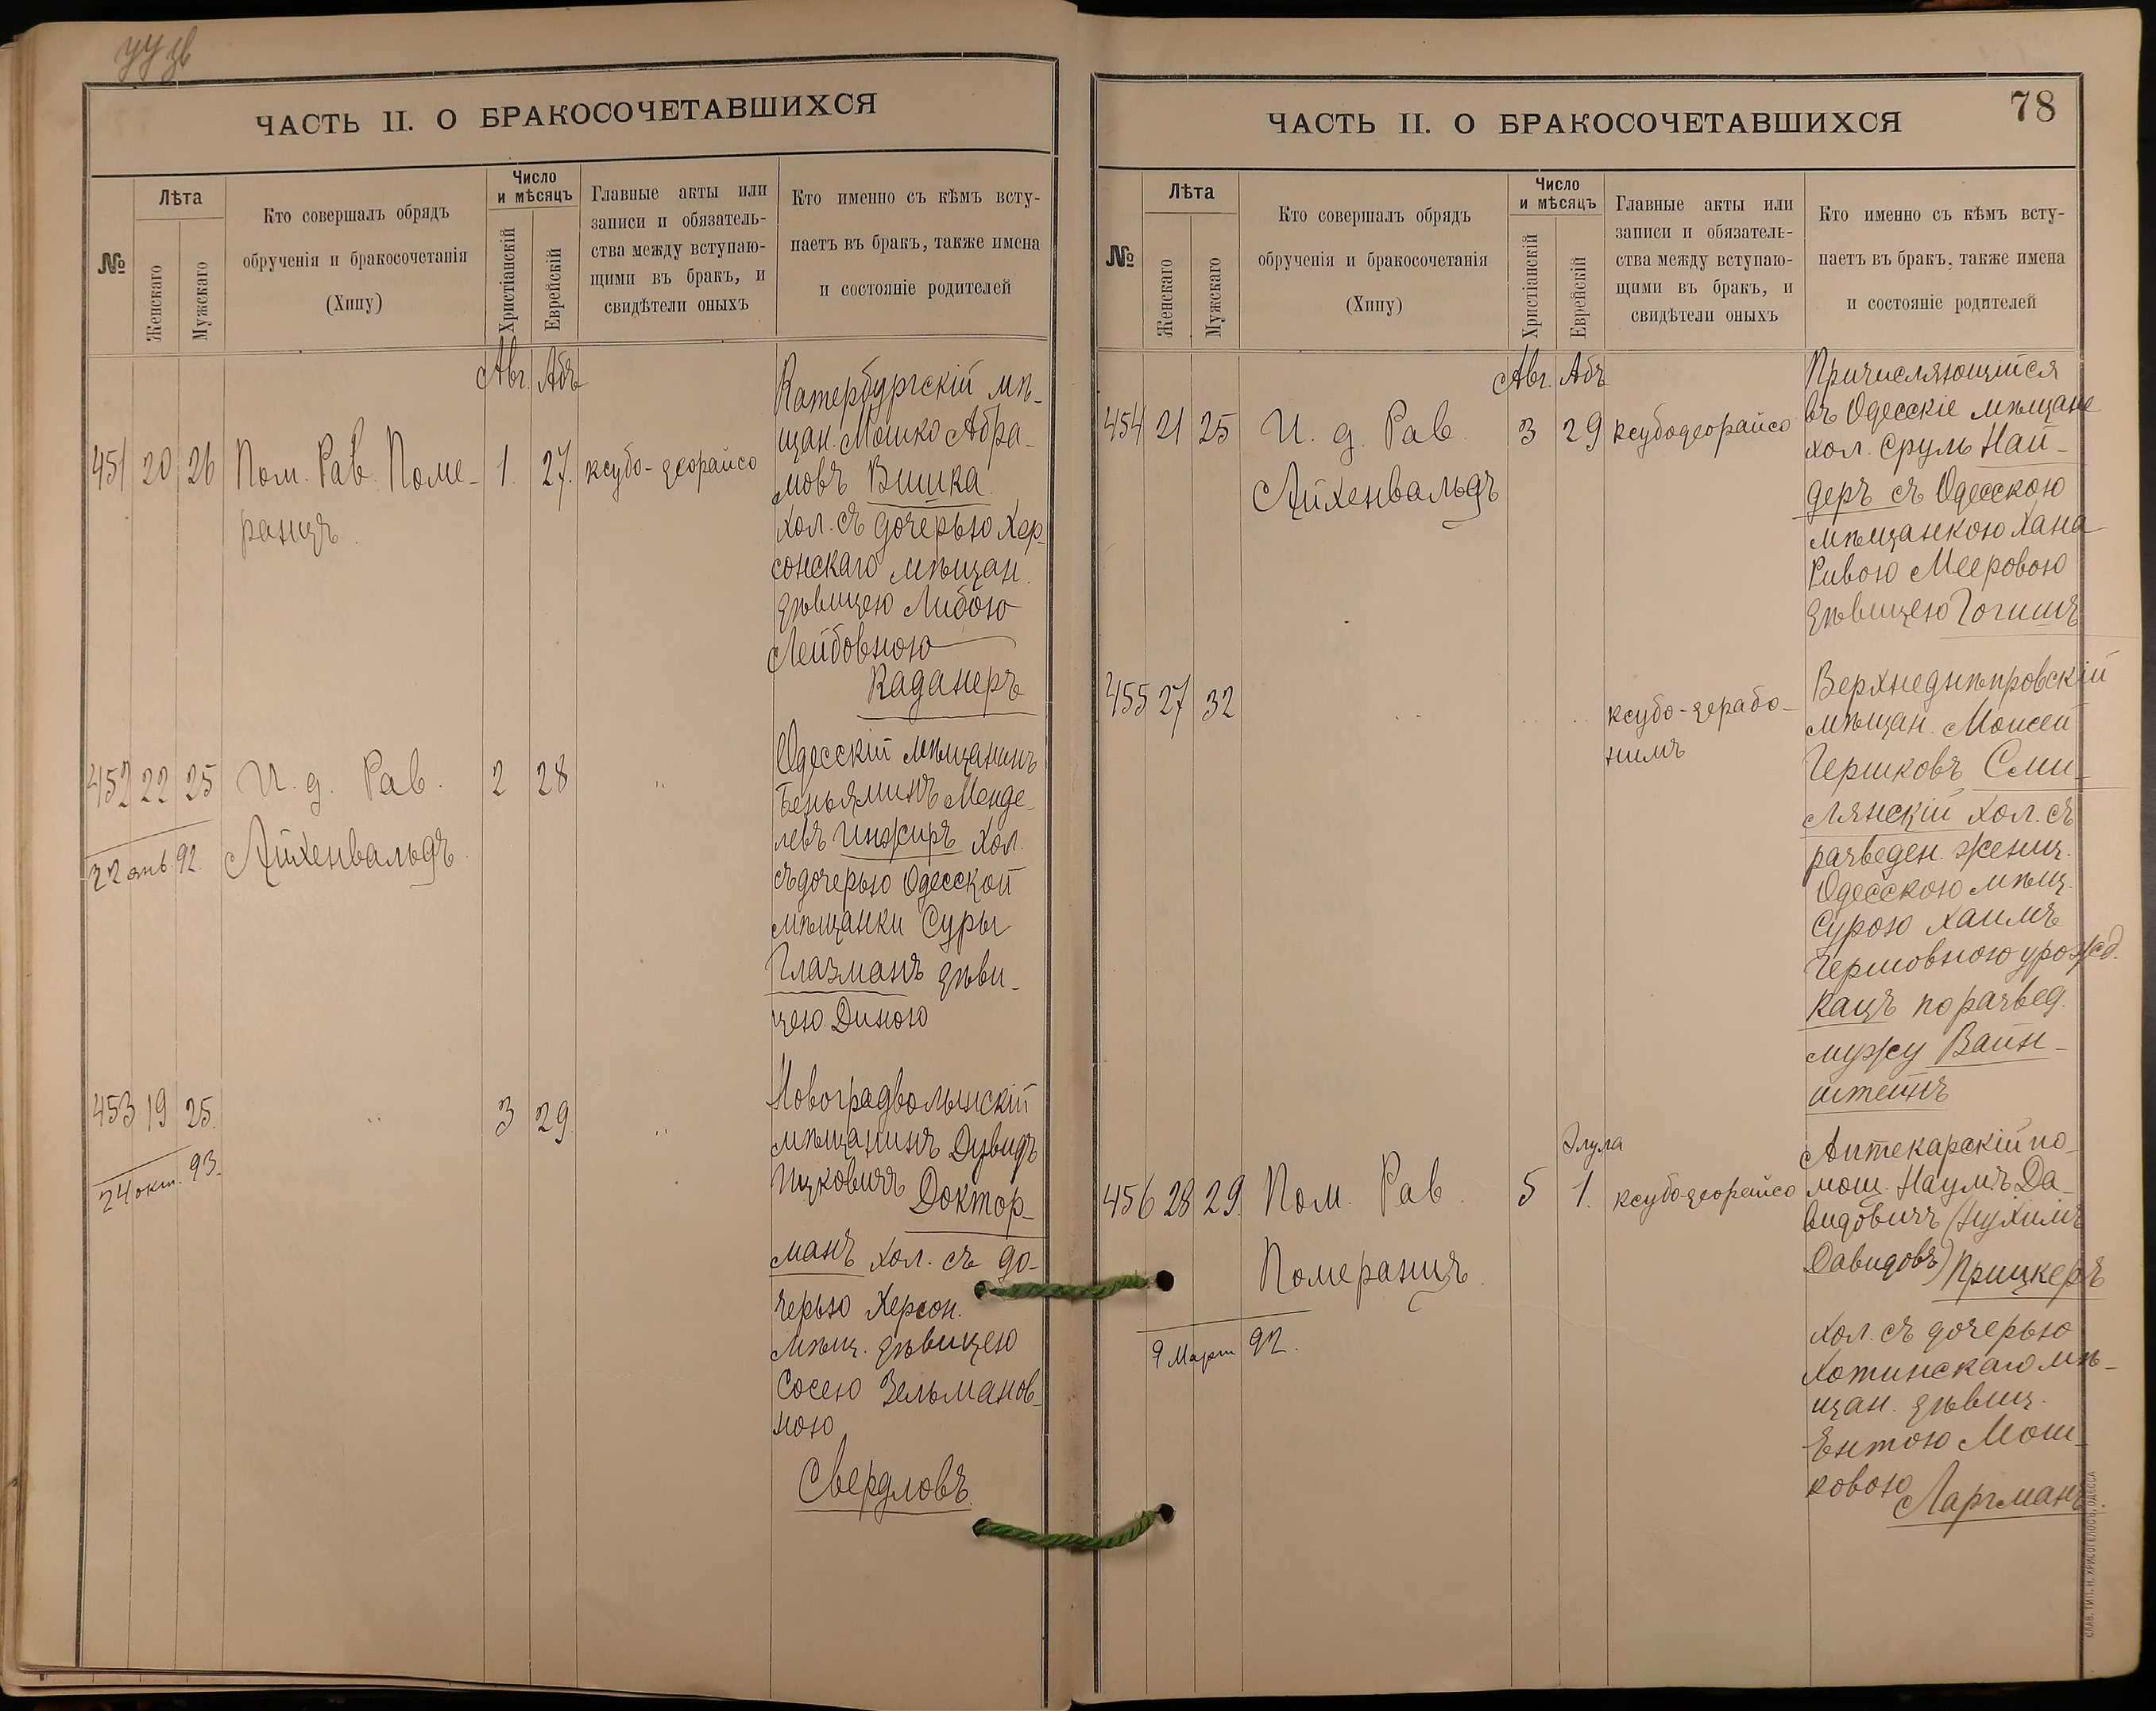 ЧАСТЬ II. О БРАКОСОЧЕТАВШИХСЯ
№
Лѣта
Женскаго
Мужскаго
Кто совершалъ обрядъ
обрученія и бракосочетанія
(Хипу)
Число
и мѣсяцъ
Христіанскій
Еврейскій
Главные акты или
записи и обязатель-
ства между вступаю-
щими въ бракъ, и
свидѣтели оныхъ
Кто именно съ кѣмъ всту-
паетъ въ бракъ, также имена
и состояніе родителей
Авг. Абъ
451 20 26
Пом. Рав. Поме-
ранцъ.
1. 27.
ксубо-деорайсо
Катербургскій мѣ-
щан. Мошко Абра-
мовъ Вишка
хол. съ дочерью Хер-
сонскаго мѣщан.
дѣвицею Либою
Лейбовною
Каданеръ
452 22 25
22 янв. 92.
И. д. Рав.
Айхенвальдъ
2 28
"
Одесскій мѣщанинъ
Беньяминъ Менде-
левъ Инжиръ хол.
съ дочерью Одесской
мѣщанки Суры
Глазманъ дѣви-
цею Диною
453 19 25.
24 окт. 93.
"
3 29
"
Новоградволынскій
мѣщанинъ Дувидъ
Ицковичъ Доктор-
манъ хол. съ до-
черью Херсон.
мѣщ. дѣвицею
Сосею Зельманов-
ною
Свердловъ
ЧАСТЬ II. О БРАКОСОЧЕТАВШИХСЯ
78
№
Лѣта
Женскаго
Мужскаго
Кто совершалъ обрядъ
обрученія и бракосочетанія
(Хипу)
Число
и мѣсяцъ
Христіанскій
Еврейскій
Главные акты или
записи и обязатель-
ства между вступаю-
щими въ бракъ, и
свидѣтели оныхъ
Кто именно съ кѣмъ всту-
паетъ въ бракъ, также имена
и состояніе родителей
Авг. Абъ
454 21 25
И. д. Рав.
Айхенвальдъ
3 29
ксубодеорайсо
Причисляющійся
въ Одесскіе мѣщане
хол. Сруль Най-
деръ съ Одесскою
мѣщанкою Хана
Ривою Мееровою
дѣвицею Гогишъ
455 27 32
" " "
ксубо-дерабо-
нимъ
Верхнеднѣпровскій
мѣщан. Моисей
Гершковъ Сми-
лянскій хол. съ
разведен. женщ.
Одесскою мѣщ.
Сурою Хаимъ
Гершовною урожд.
Кацъ по развед.
мужу Вайн-
штейнъ
456 28 29.
9 Март 92.
Пом. Рав.
Померанцъ.
Элула
5 1.
ксубо-деорайсо
Аптекарскій по-
мощ. Наумъ Да-
видовичъ (Нухимъ
Давидовъ) Прицкеръ
хол. съ дочерью
Хотинскаго мѣ-
щан. дѣвиц.
Ентою Мош-
ковою Ларгманъ.
СЛАВ. ТИП. Н. ХРИСОГЕЛОСЪ, ОДЕССА